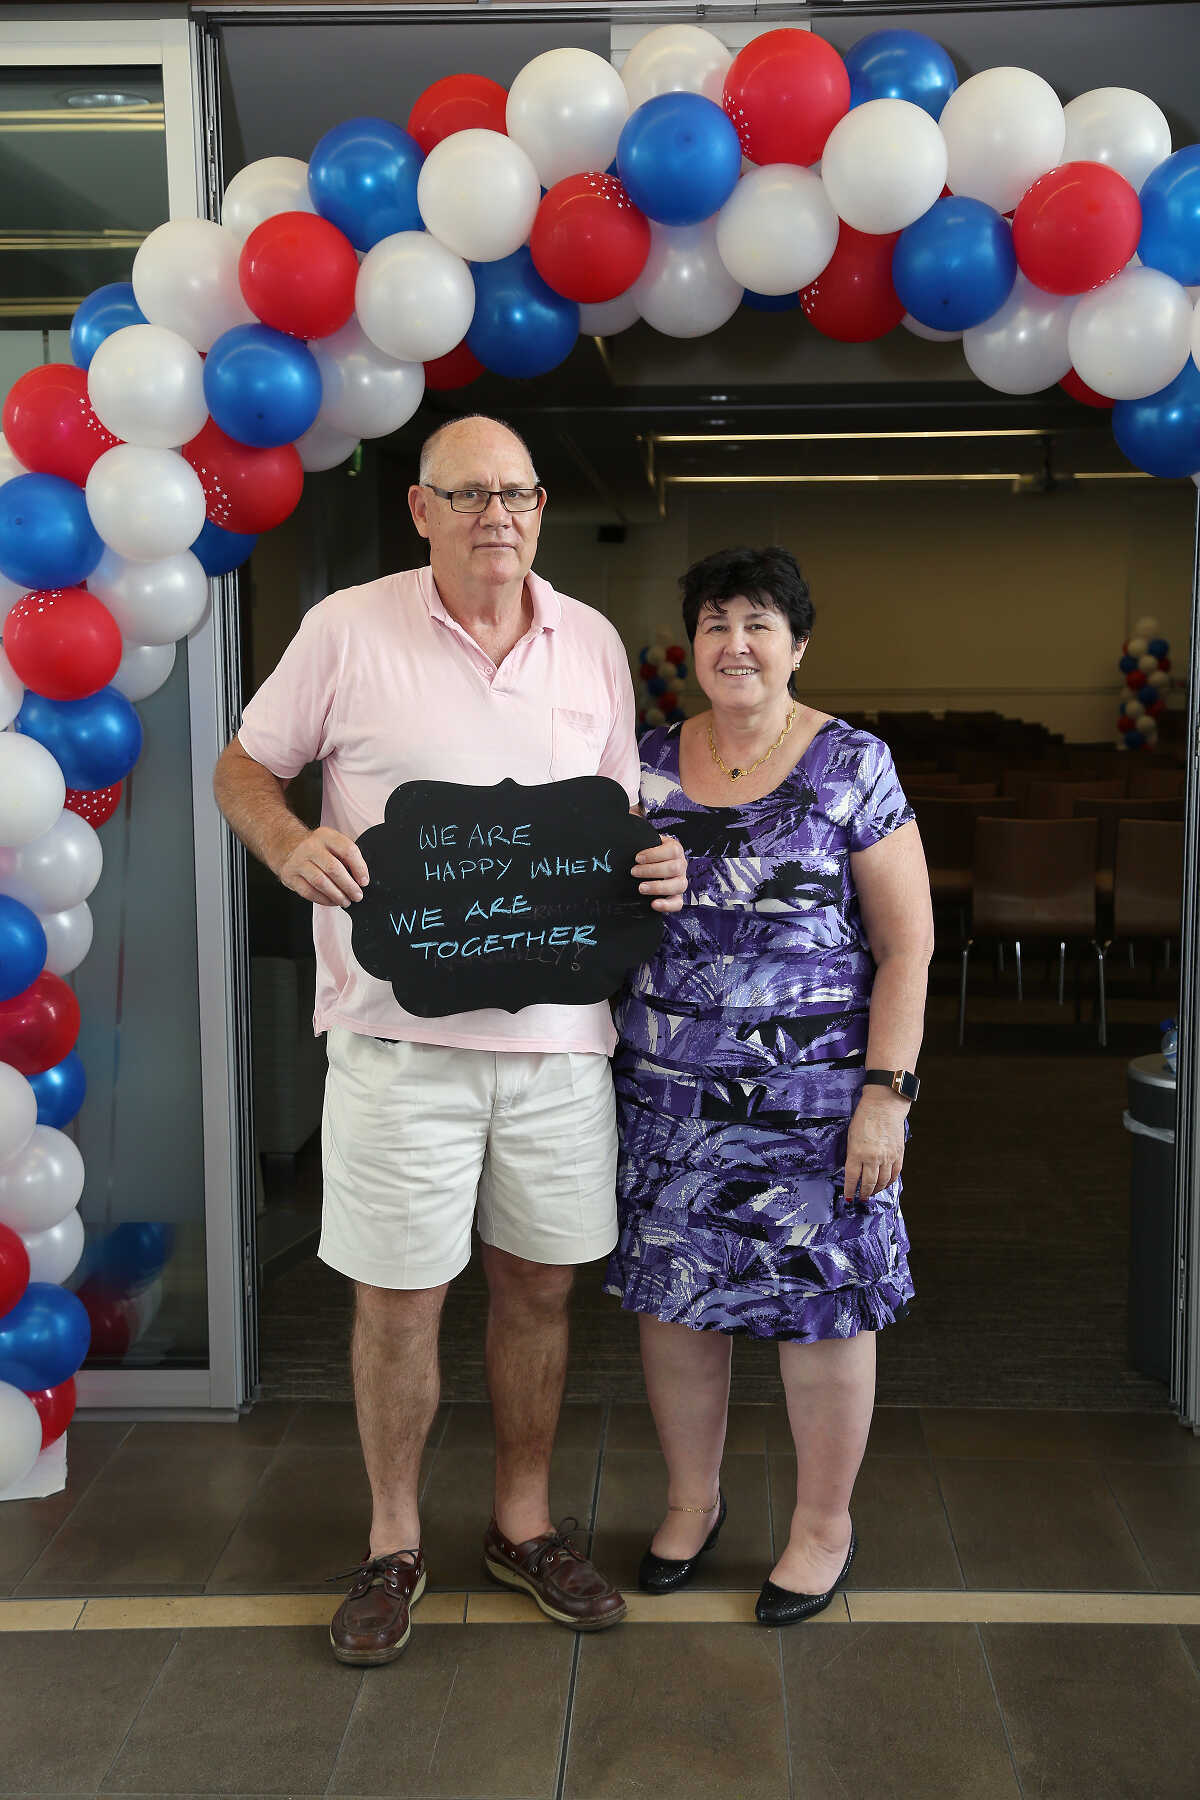 WE ARE
HAPPY WHEN
WE ARE
TOGETHER